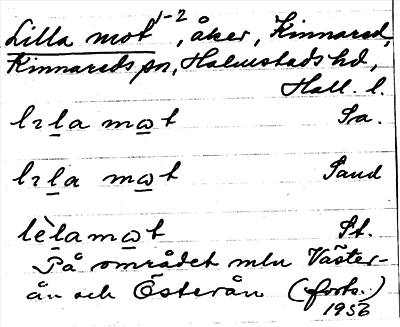 Lilla mot 1-2, åker, Kinnared,
Kinnareds sn, Halmstads hd,
Hall. l.
lɿla mωt Sa.
lɿla mωt Sand
lèlamωt St.
På området mln Väster-
ån och Österån (forts.)
1956